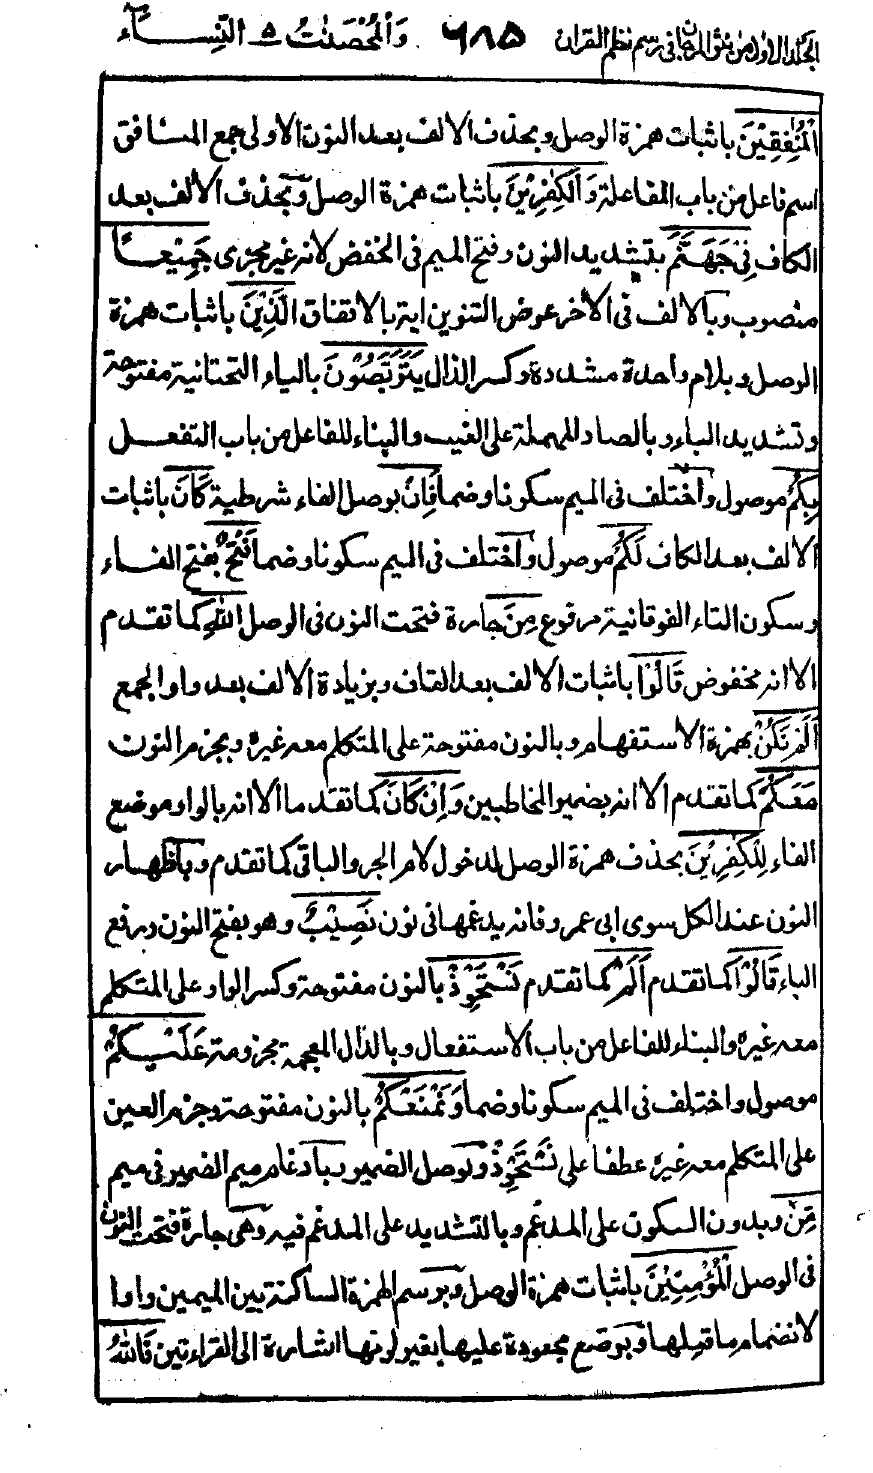 الجلد الاول من نثر المرجان في رسم نظم القران ٦٨٥ وَالْمُحْصَنٰتُ ٥ النِّسَآء
الْمُنٰفِقِيْنَ باثبات همزة الوصل وبحذف الالف بعد النون الاولى جمع المنافق
اسم فاعل من باب المفاعلة وَالْكٰفِرِيْنَ باثبات همزة الوصل وبحذف الالف بعد
الكاف فِيْ جَهَنَّمَ بتشديد النون وفتح الميم في الخفض لانه غير مجرى جَمِيْعًا
منصوب وبالالف في الاخر عوض التنوين اية بالاتفاق الَّذِيْنَ باثبات همزة
الوصل وبلام واحدة مشددة وكسر الذال يَتَرَبَّصُوْنَ بالياء التحتانية مفتوحة
وتشديد الباء وبالصاد المهملة على الغيب والبناء للفاعل من باب التفعل
بِكُمْ موصول واختلف في الميم سكونا وضما فَاِنْ بوصل الفاء شرطية كَانَ باثبات
الالف بعد الكاف لَكُمْ موصول واختلف في الميم سكونا وضما فَتْحٌ بفتح الفاء
وسكون التاء الفوقانية مرفوع مِنَ جارة فتحت النون في الوصل اللّٰهِ كما تقدم
الا انه مخفوض قَالُوْٓا باثبات الالف بعد القاف وبزيادة الالف بعد واو الجمع
اَلَمْ نَكُنْ بهمزة الاستفهام وبالنون مفتوحة على المتكلم معه غيره وبجزم النون
مَعَكُمْ كما تقدم الا انه بضمير المخاطبين وَاِنْ كَانَ كما تقدما الا انه بالواو موضع
الفاء لِلْكٰفِرِيْنَ بحذف همزة الوصل لدخول لام الجر والباقي كما تقدم وباظهار
النون عند الكل سوى ابي عمرو فانه يدغمها في نون نَصِيْبٌ وهو بفتح النون ورفع
الباء قَالُوْٓا كما تقدم اَلَمْ كما تقدم نَسْتَحْوِذْ بالنون مفتوحة وكسر الواو على المتكلم
معه غيره والبناء للفاعل من باب الاستفعال وبالذال المعجمة مجزومة عَلَيْكُمْ
موصول واختلف في الميم سكونا وضما وَنَمْنَعْكُمْ بالنون مفتوحة وجزم العين
على المتكلم معه غيره عطفا على نَسْتَحْوِذْ وبوصل الضمير وبادغام ميم الضمير في ميم
مِّنَ وبدون السكون على المدغم وبالتشديد على المدغم فيه وهي جارة فتحت النون
في الوصل الْمُؤْمِنِيْنَ باثبات همزة الوصل وبرسم الهمزة الساكنة بين الميمين واوا
لانضمام ما قبلها وبوضع مجعودة عليها بغير لونها اشارة الى القراءتين فَاللّٰهُ